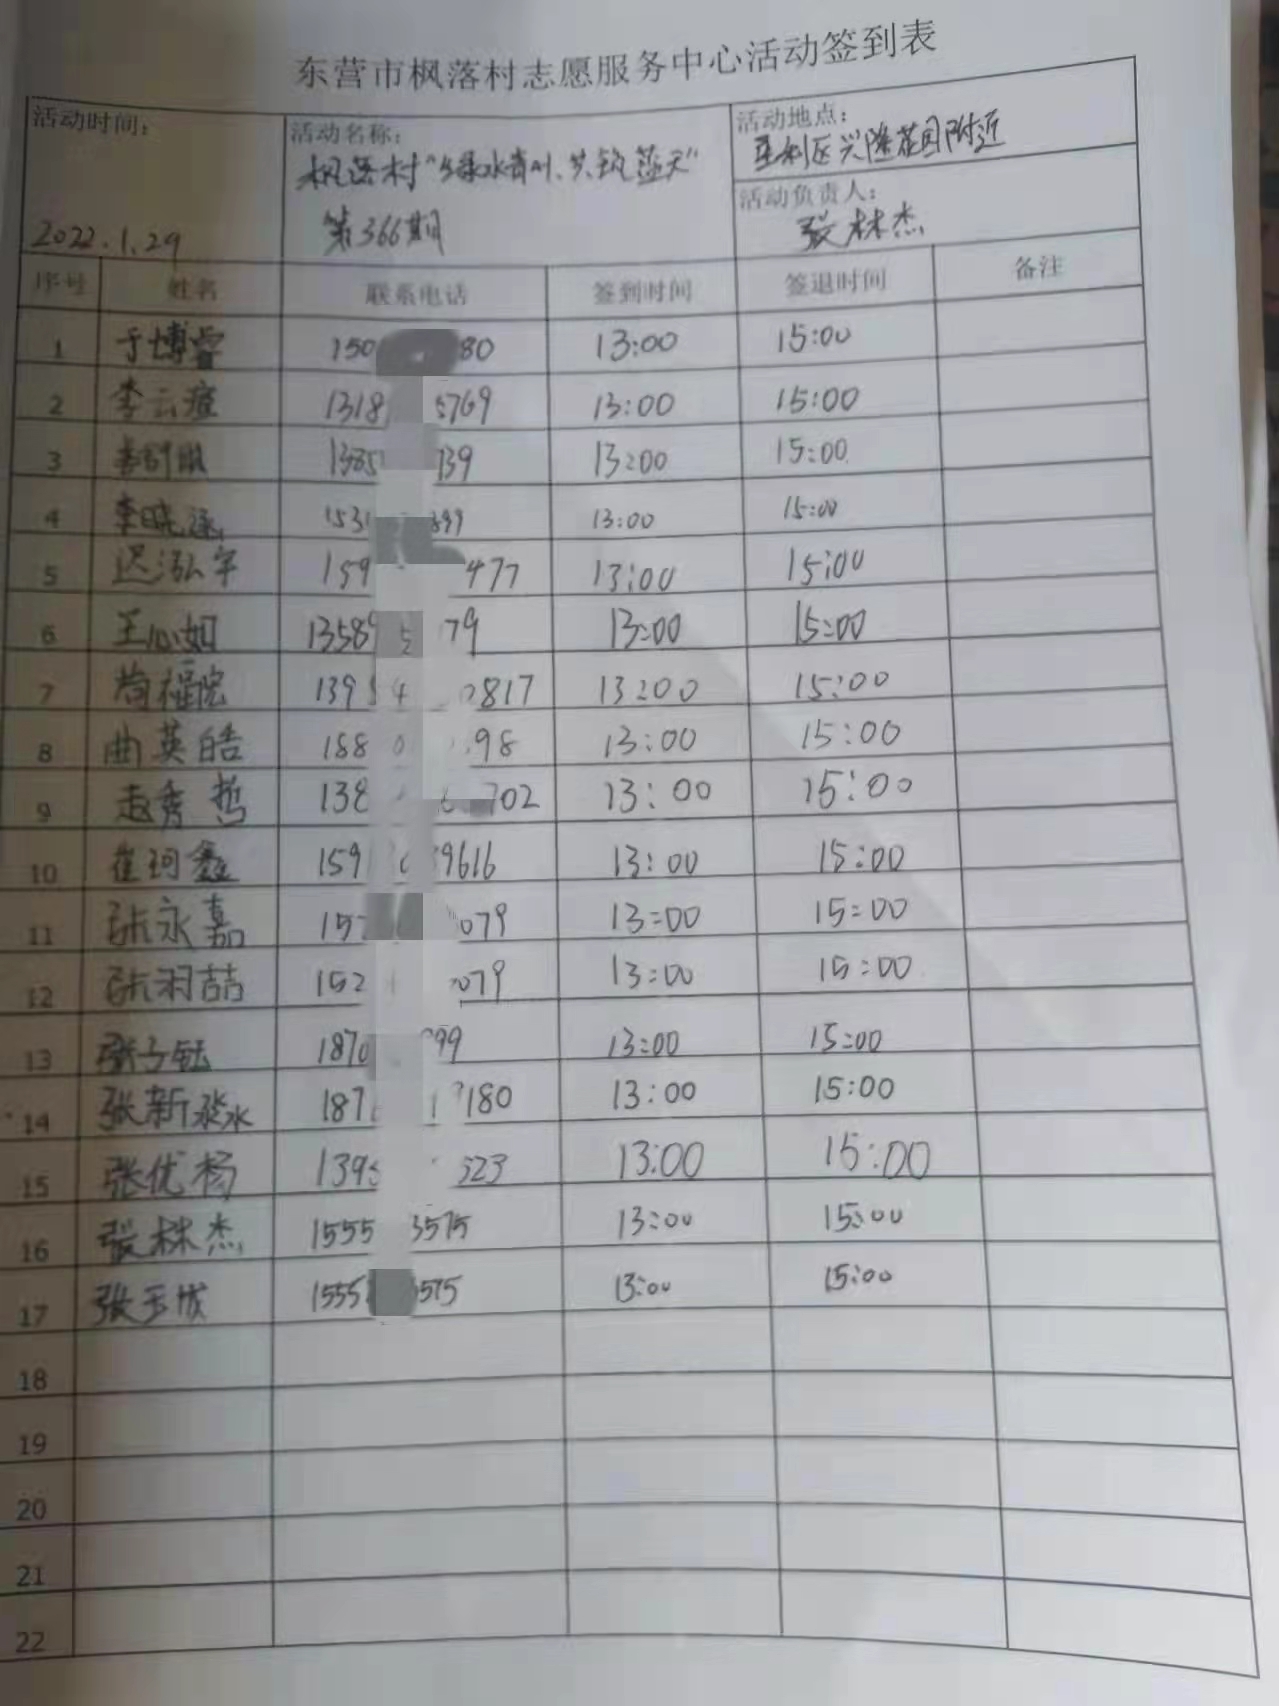 东营市枫落村志愿服务中心活动签到表
活动时间： 活动名称： 活动地点：
枫落村“绿水青山、共筑蓝天” 垦利区兴隆花园附近
活动负责人：
2022.1.29 第366期 张林杰
序号 姓名 联系电话 签到时间 签退时间 备注
1 于博睿 150 80 13:00 15:00
2 李云 1318 5769 13:00 15:00
3 1385 739 13:00 15:00
4 李晓涵 1531 399 13:00 15:00
5 迟泓宇 159 477 13:00 15:00
6 王心如 13589 5 79 13:00 15:00
7 福 139 4 0817 13:00 15:00
8 曲英皓 188 0 98 13:00 15:00
9 赵秀哲 138 6 702 13:00 15:00
10 崔珂鑫 159 9616 13:00 15:00
11 张永嘉 152 079 13:00 15:00
12 张羽喆 152 079 13:00 15:00
13 张子钰 1870 99 13:00 15:00
14 张新淼 187 1 180 13:00 15:00
15 张优杨 139 523 13:00 15:00
16 张林杰 1555 3575 13:00 15:00
17 张玉成 1555 3575 13:00 15:00
18
19
20
21
22